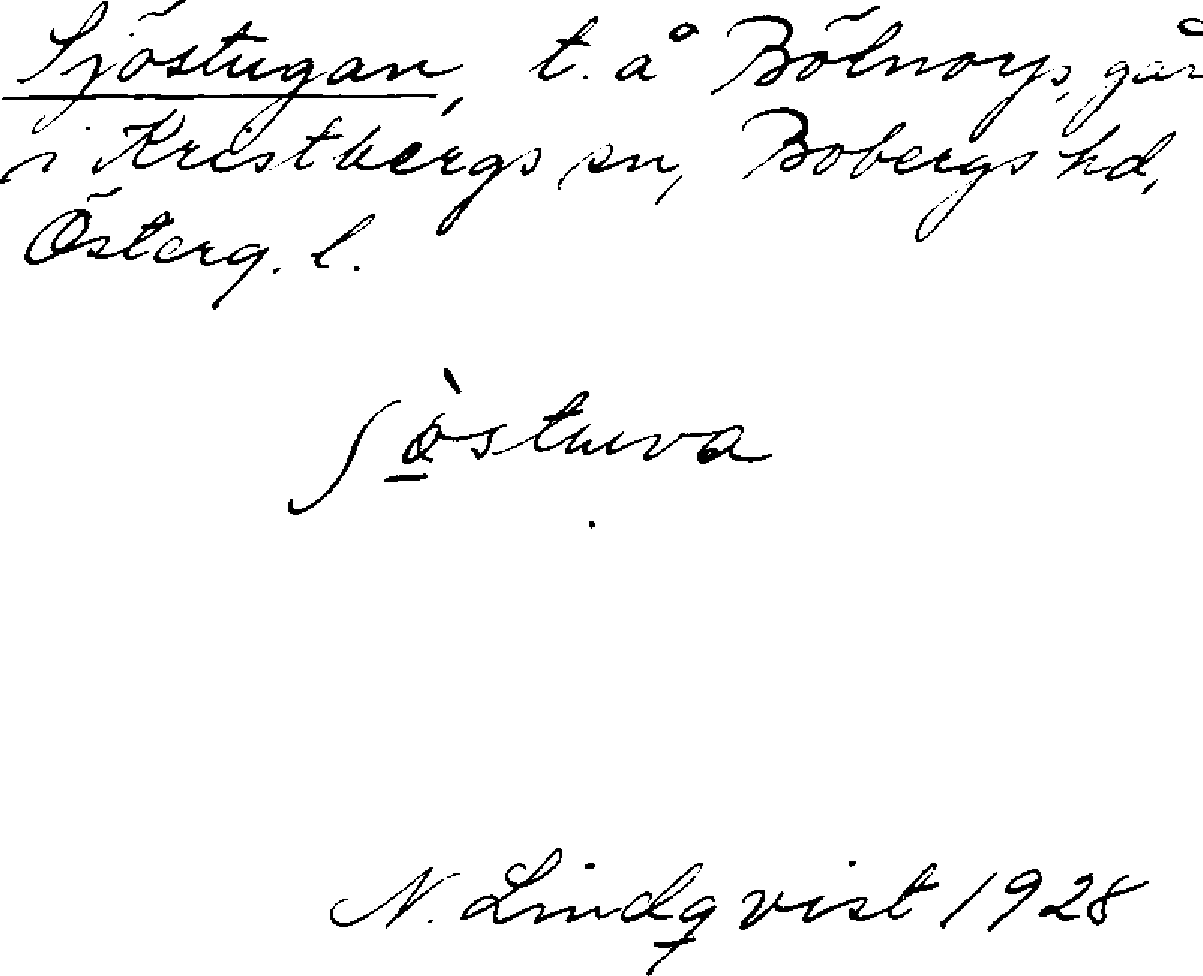 Sjöstugan, t. å Bölnorp, går
i Kristbergs sn, Bobergs hd,
Österg. l.
ʃö̀stuva
N. Lindqvist 1928